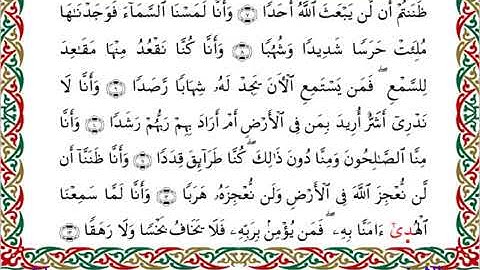 ظَنَنتُمْ أَن لَّن يَبْعَثَ ٱللَّهُ أَحَدًا ۝٧ وَأَنَّا لَمَسْنَا ٱلسَّمَآءَ فَوَجَدْنَٰهَا
مُلِئَتْ حَرَسًا شَدِيدًا وَشُهُبًا ۝٨ وَأَنَّا كُنَّا نَقْعُدُ مِنْهَا مَقَٰعِدَ
لِلسَّمْعِ ۖ فَمَن يَسْتَمِعِ ٱلْءَانَ يَجِدْ لَهُۥ شِهَابًا رَّصَدًا ۝٩ وَأَنَّا لَا
نَدْرِىٓ أَشَرٌّ أُرِيدَ بِمَن فِى ٱلْأَرْضِ أَمْ أَرَادَ بِهِمْ رَبُّهُمْ رَشَدًا ۝١٠ وَأَنَّا
مِنَّا ٱلصَّٰلِحُونَ وَمِنَّا دُونَ ذَٰلِكَ ۖ كُنَّا طَرَآئِقَ قِدَدًا ۝١١ وَأَنَّا ظَنَنَّآ أَن
لَّن نُّعْجِزَ ٱللَّهَ فِى ٱلْأَرْضِ وَلَن نُّعْجِزَهُۥ هَرَبًا ۝١٢ وَأَنَّا لَمَّا سَمِعْنَا
ٱلْهُدَىٰٓ ءَامَنَّا بِهِۦ ۖ فَمَن يُؤْمِنۢ بِرَبِّهِۦ فَلَا يَخَافُ بَخْسًا وَلَا رَهَقًا ۝١٣